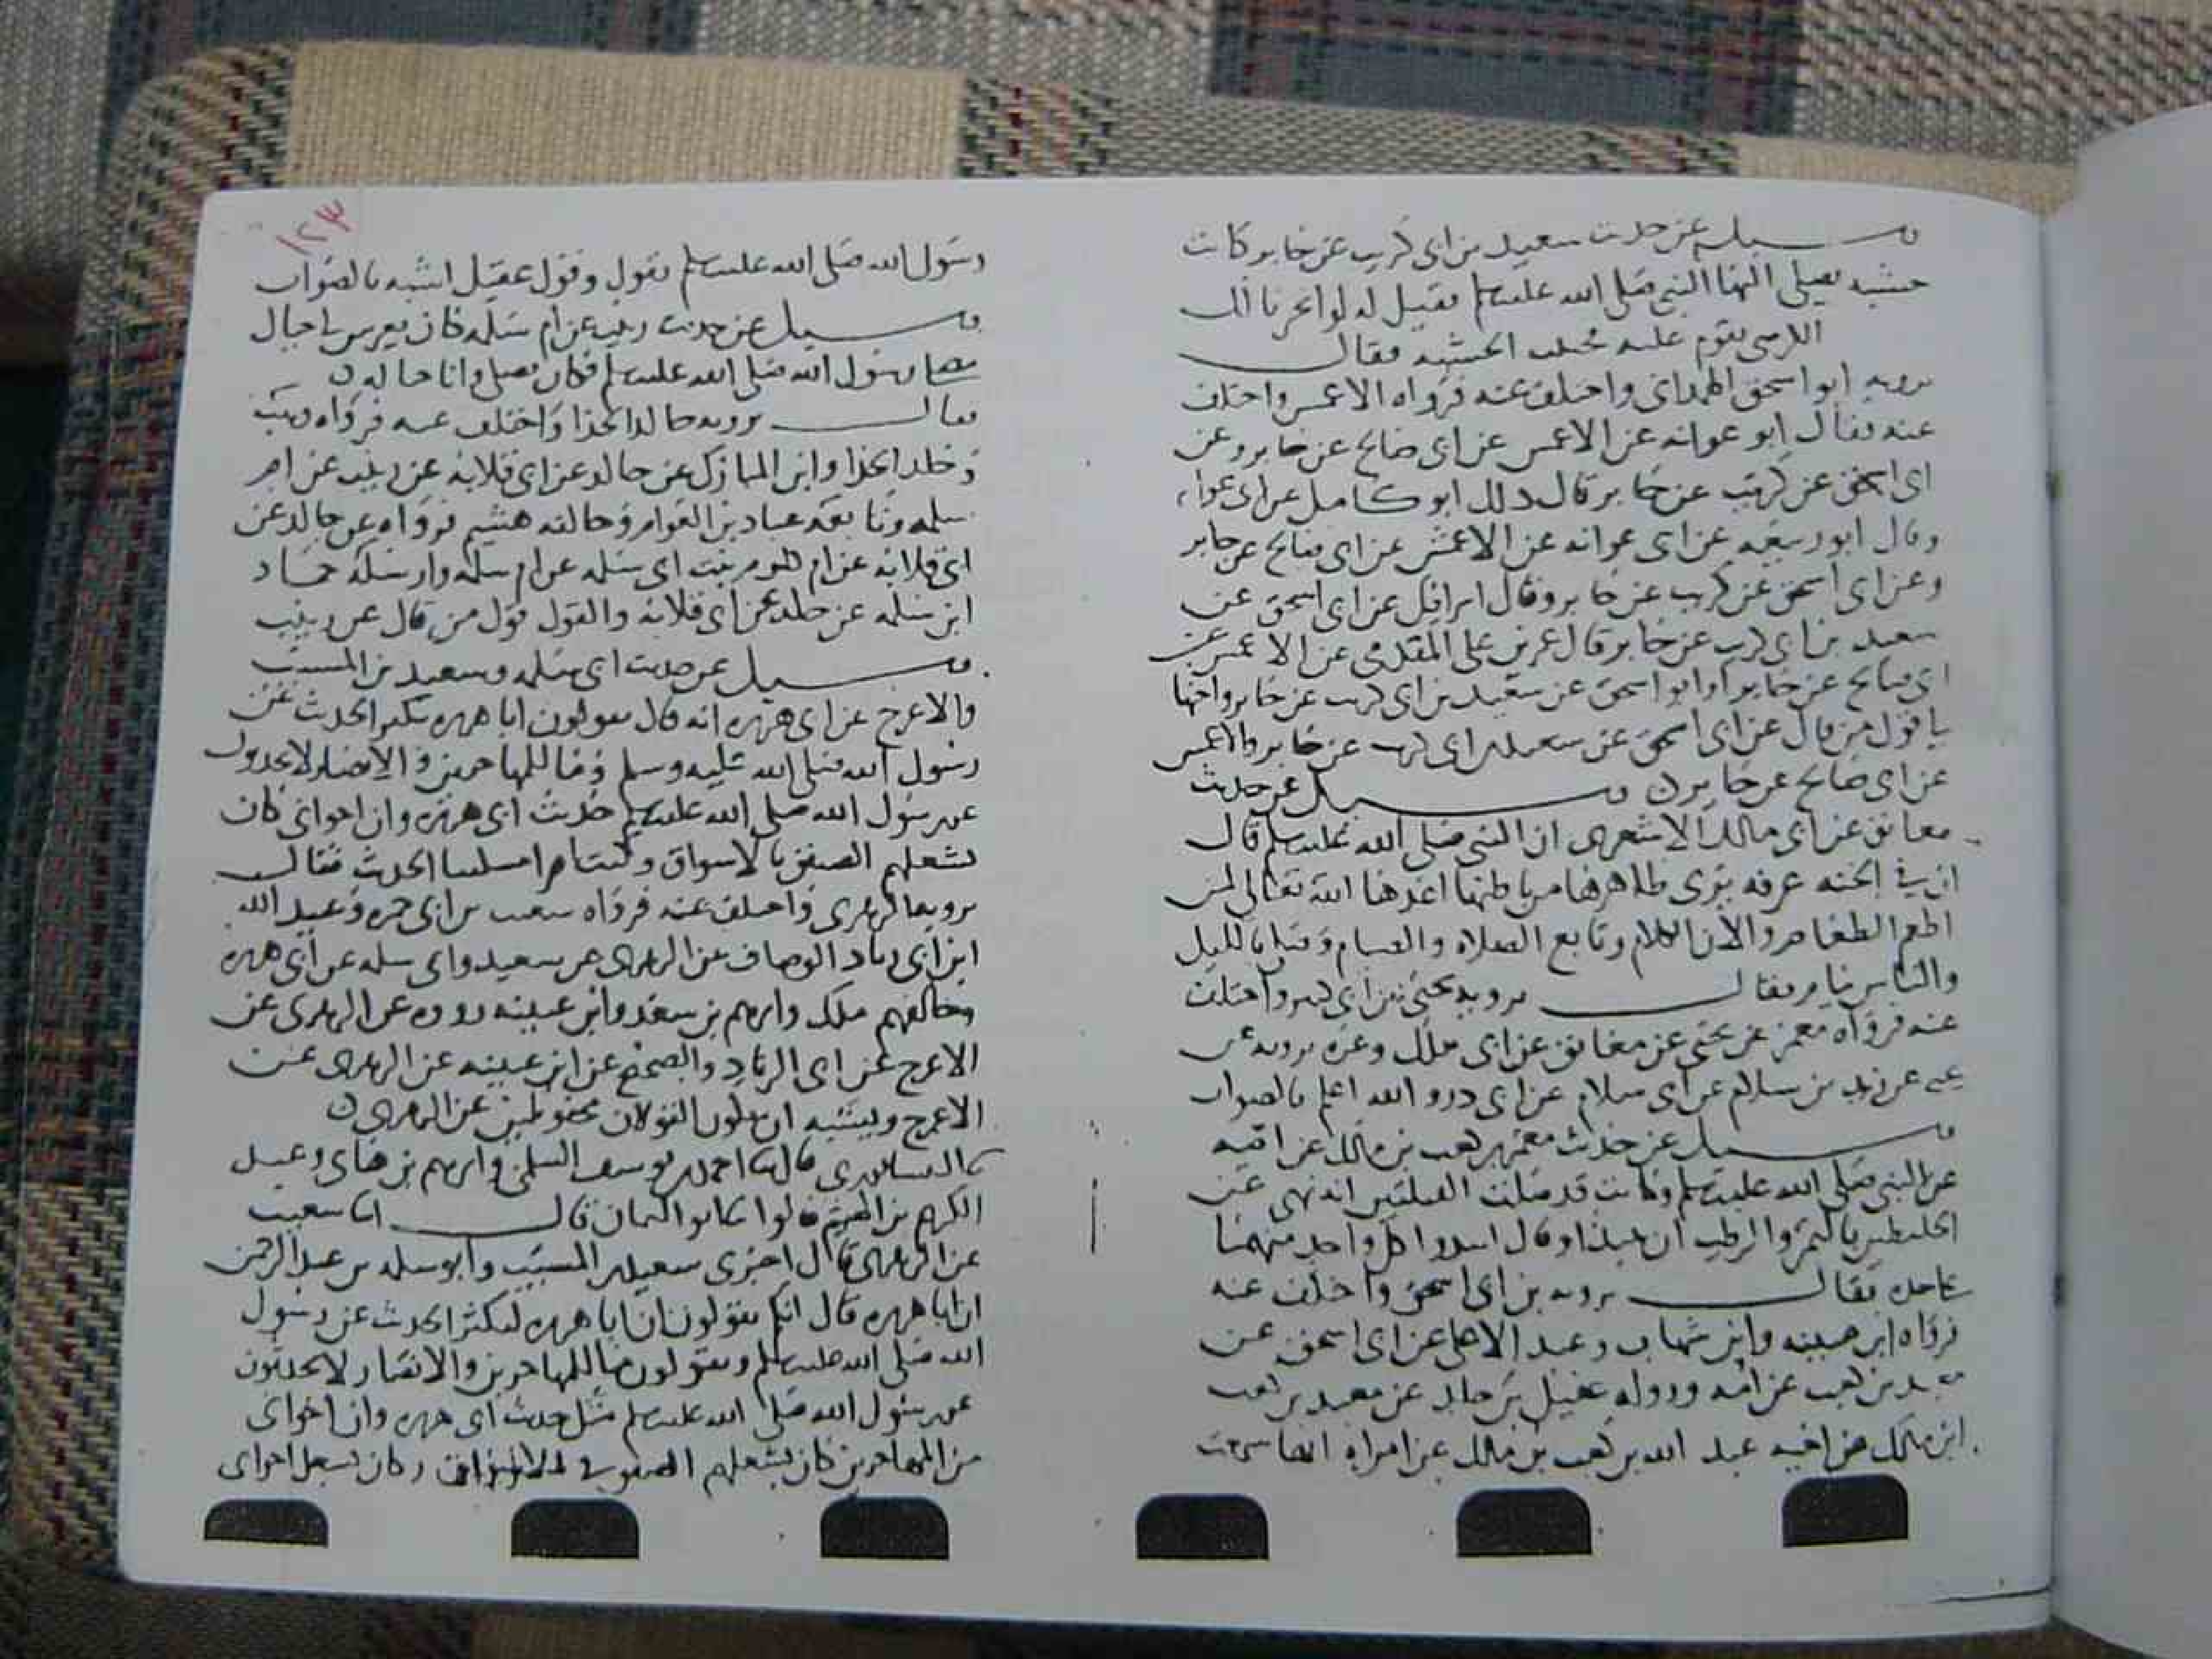 وسيل عن حديث سعيد بن ابى كريب عن جابر كانت
خشبه يصلى اليها النبى صلى الله عليه وسلم فقيل له لو اتخذنا لك
الكرسى تقوم عليه فحنت الخشبه فقال
يرويه ابو اسحق الهمدانى واختلف عنه فرواه الاعمش واختلف
عنه فقال ابو عوانه عن الاعمش عن ابى صالح عن جابر وعن
ابى اسحق عن كريب عن جابر قال ذلك ابو كامل عن ابى عوانه
وقال ابو ربيعه عن ابى عوانه عن الاعمش عن ابى صالح عن جابر
وعن ابى اسحق عن كريب عن جابر وقال اسرائيل عن ابى اسحق عن
سعيد بن ابى كرب عن جابر قال عمر بن على المقدمى عن الاعمش عن
ابى صالح عن جابر وابو اسحق عن سعيد بن ابى كرب عن جابر واصحها
قول من قال عن ابى اسحق عن سعيد بن ابى كرب عن جابر والاعمش
عن ابى صالح عن جابر ن وسيل عن حديث
معانق عن ابى مالك الاشعرى ان النبى صلى الله عليه وسلم قال
ان فى الجنه غرفه يرى ظاهرها من باطنها اعدها الله تعالى لمن
اطعم الطعام والان الكلام وتابع الصلاه والصيام وصلى بالليل
والناس نيام فقال يرويه يحيى بن ابى كثير واختلف
عنه فرواه معمر عن يحيى عن معانق عن ابى ملك وغيره يرويه عن
يحيى عن زيد بن سلام عن ابى سلام عن ابى درو الله اعلم بالصواب
وسيل عن حديث معبد بن كعب بن مالك عن امه
عن النبى صلى الله عليه وسلم وكانت قد صلت القبلتين انه نهى عن
الخليطين بالتمر والرطب ان ينبذا وقال انبذوا كل واحد منهما
على حده فقال يرويه بن ابى اسحق واختلف عنه
فرواه ابن عيينه وابن شهاب وعبد الاعلى عن ابى اسحق عن
معبد بن كعب عن امه ورواه عقيل بن خالد عن معبد بن كعب
ابن مالك عن اخيه عبد الله بن كعب بن مالك عن امراه انها سمعت
١٢٣
رسول الله صلى الله عليه وسلم يقول وقول عقيل اشبه بالصواب
وسيل عن حديث زينب عن ام سلمه كان يفرش لى حيال
مصلى رسول الله صلى الله عليه وسلم فكان يصلى وانا حياله ن
فقال يرويه خالد الحذا واختلف عنه فرواه وهيب
وخالد الحذا وابن المبارك عن خالد عن ابى قلابه عن زينب عن ام
سلمه وتابعه عباد بن العوام وخالفه هشيم فرواه عن خالد عن
ابى قلابه عن ام كلثوم بنت ابى سلمه عن ام سلمه وارسله حماد
ابن سلمه عن خالد عن ابى قلابه والقول قول من قال عن زينب
وسيل عن حديث ابى سلمه وسعيد بن المسيب
والاعرج عن ابى هريره انه قال يقولون ابا هريره يكثر الحديث عن
رسول الله صلى الله عليه وسلم وما للمهاجرين والانصار لا يحدثون
عن رسول الله صلى الله عليه وسلم حديث ابى هريره وان اخوانى كان
يشغلهم الصفق بالاسواق وكنت امرا مسكينا الحديث فقال
يرويه الزهرى واختلف عنه فرواه شعيب بن ابى حمزه وعبيد الله
ابن ابى زياد الوصافى عن الزهرى عن سعيد وابى سلمه عن ابى هريره
وخالفهم ملك وابرهيم بن سعد وابن عيينه رووه عن الزهرى عن
الاعرج عن ابى الزناد والصحيح عن ابن عيينه عن الزهرى عن
الاعرج ويشبه ان يكون القولان محفوظين عن الزهرى ن
ثنا النيسابورى قال ثنا احمد بن يوسف السلمى وابرهيم بن هانى وعبد
الكريم بن الهيثم قالوا ثنا ابو اليمان قال انا شعيب
عن الزهرى قال اخبرنى سعيد بن المسيب وابو سلمه بن عبد الرحمن
ان ابا هريره قال انكم تقولون ان ابا هريره ليكثر الحديث عن رسول
الله صلى الله عليه وسلم وتقولون ما للمهاجرين والانصار لا يحدثون
عن رسول الله صلى الله عليه وسلم مثل حديث ابى هريره وان اخوانى
من المهاجرين كان يشغلهم الصفق فى الاسواق وكان يشغل اخوانى